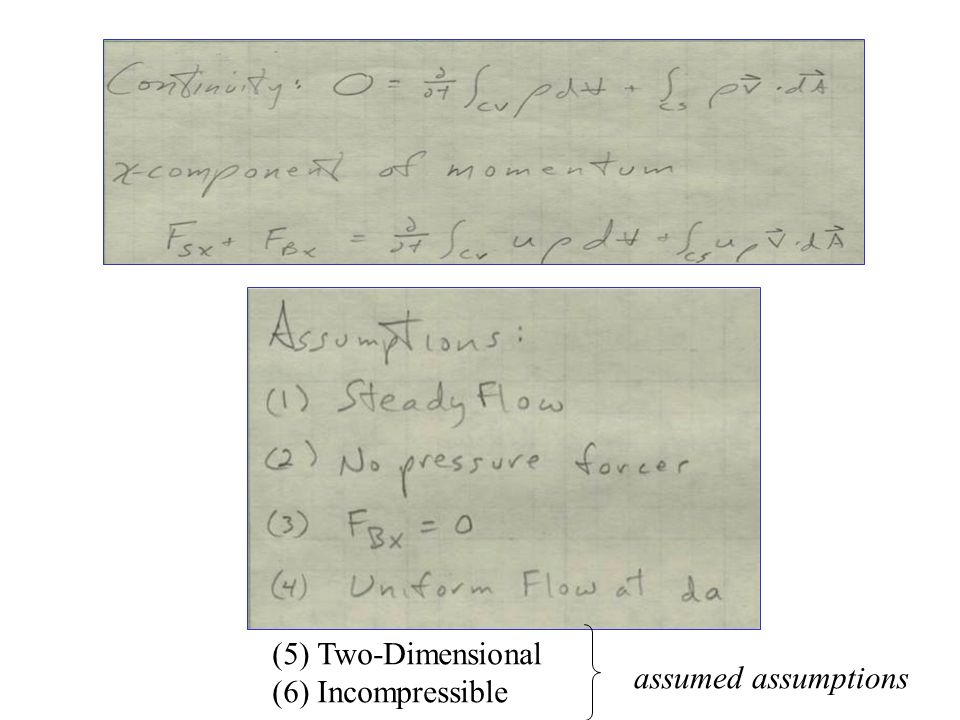 Continuity: 0 = ∂/∂t ∫cv ρ dV̶ + ∫cs ρ V⃗ · dA⃗
x-component of momentum
Fsx + FBx = ∂/∂t ∫cv u ρ dV̶ + ∫cs u ρ V⃗ · dA⃗
Assumptions:
(1) Steady Flow
(2) No pressure forces
(3) FBx = 0
(4) Uniform Flow at da
(5) Two-Dimensional
(6) Incompressible
assumed assumptions